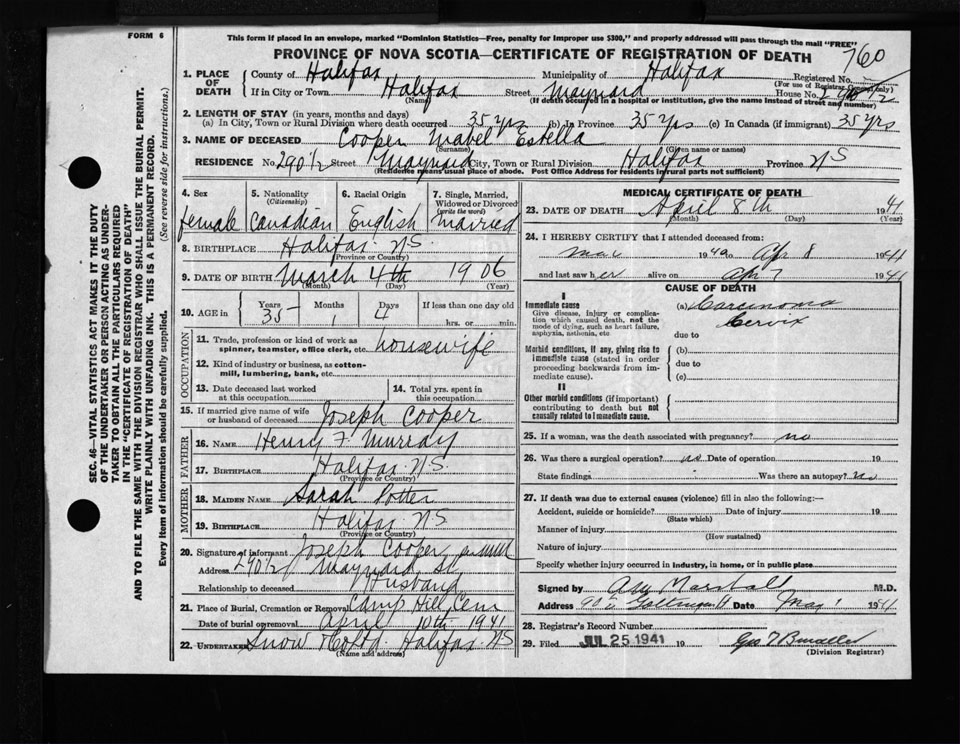 FORM 6
This form if placed in an envelope, marked "Dominion Statistics—Free, penalty for improper use $300," and properly addressed will pass through the mail "FREE"
PROVINCE OF NOVA SCOTIA—CERTIFICATE OF REGISTRATION OF DEATH
760
1. PLACE OF DEATH
County of Halifax Municipality of Halifax Registered No.
(For use of Registrar General only)
If in City or Town Halifax Street Maynard House No. 290 1/2
(Name) (If death occurred in a hospital or institution, give the name instead of street and number)
2. LENGTH OF STAY (in years, months and days)
(a) In City, Town or Rural Division where death occurred 35 yrs (b) In Province 35 yrs (c) In Canada (if immigrant) 35 yrs
3. NAME OF DECEASED Cooper Mabel Estella
(Surname) (Given name or names)
RESIDENCE No. 290 1/2 Street Maynard City, Town or Rural Division Halifax Province NS
(Residence means usual place of abode. Post Office Address for residents in rural parts not sufficient)
4. Sex female
5. Nationality (Citizenship) Canadian
6. Racial Origin English
7. Single, Married, Widowed or Divorced (write the word) Married
8. BIRTHPLACE Halifax NS.
(Province or Country)
9. DATE OF BIRTH March 4th 1906
(Month) (Day) (Year)
10. AGE in Years 35 Months 1 Days 4 If less than one day old
hrs. or min.
OCCUPATION
11. Trade, profession or kind of work as spinner, teamster, office clerk, etc. housewife
12. Kind of industry or business, as cotton-mill, lumbering, bank, etc.
13. Date deceased last worked at this occupation
14. Total yrs. spent in this occupation
15. If married give name of wife or husband of deceased Joseph Cooper
FATHER
16. NAME Henry F. Murray
17. BIRTHPLACE Halifax NS
(Province or Country)
MOTHER
18. MAIDEN NAME Sarah Potter
19. BIRTHPLACE Halifax NS
(Province or Country)
20. Signature of informant Joseph Cooper
Address 290 1/2 Maynard St
Relationship to deceased Husband
21. Place of Burial, Cremation or Removal Camp Hill Cem
Date of burial or removal April 10th 1941
22. UNDERTAKER Snow & Co Ltd Halifax NS
(Name and address)
MEDICAL CERTIFICATE OF DEATH
23. DATE OF DEATH April 8th 1941
(Month) (Day) (Year)
24. I HEREBY CERTIFY that I attended deceased from:
1940 to Apr 8 1941
and last saw her alive on Apr 7 1941
CAUSE OF DEATH
I
Immediate cause (a) Carcinoma
Give disease, injury or complication which caused death, not the mode of dying, such as heart failure, asphyxia, asthenia, etc.
Cervix
due to
Morbid conditions, if any, giving rise to immediate cause (stated in order proceeding backwards from immediate cause).
(b)
due to
(c)
II
Other morbid conditions (if important) contributing to death but not causally related to immediate cause.
25. If a woman, was the death associated with pregnancy? no
26. Was there a surgical operation? no Date of operation 19
State findings Was there an autopsy? no
27. If death was due to external causes (violence) fill in also the following:—
Accident, suicide or homicide? Date of injury 19
(State which)
Manner of injury
(How sustained)
Nature of injury
Specify whether injury occurred in industry, in home, or in public place
Signed by Marshall M.D.
Address Date May 1 1941
28. Registrar's Record Number
29. Filed JUL 25 1941 19
(Division Registrar)
SEC. 46—VITAL STATISTICS ACT MAKES IT THE DUTY
OF THE UNDERTAKER OR PERSON ACTING AS UNDER-
TAKER TO OBTAIN ALL THE PARTICULARS REQUIRED
IN THE "CERTIFICATE OF REGISTRATION OF DEATH"
AND TO FILE THE SAME WITH THE DIVISION REGISTRAR WHO SHALL ISSUE THE BURIAL PERMIT.
WRITE PLAINLY WITH UNFADING INK. THIS IS A PERMANENT RECORD.
Every item of information should be carefully supplied. (See reverse side for instructions.)